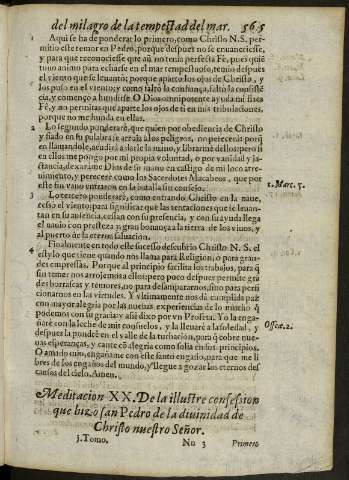 del milagro de la tempestad del mar. 565
1 Aqui se ha de ponderar lo primero, como Christo N. S. per-
mitio este temor en Pedro, porque despues no se envaneciesse,
y para que reconociesse que aũ no tenia perfecta Fè, pues quiẽ
tuuo animo para echarse en el mar tempestuoso, temio despues
el viento que se leuantò; porque apartò los ojos de Christo, y
los puso en el viento; y como faltò la confiança, faltò la consistẽ
cia, y començo a hundirse O Dios omnipotente ayuda mi flaca
Fè, y no permitas que aparte los ojos de ti en mis tribulaciones,
porque no me hunda en ellas.
2 Lo segundo ponderarè, que quien por obediencia de Christo
y fiado en su palabra se arroja a los peligros, no perecerà: porq̃
en llamandole, acudirà a darle la mano, y librarme dellos: pero si
en ellos me pongo por mi propia voluntad, o por vanidad y ja-
ctancia, dexarame Dios de su mano en castigo de mi loco atre-
uimiento, y perecerè como los Sacerdotes Macabeos, que por
este fin vano entraron en la batalla sin consejo.
1. Mac. 5.
3 Lo tercero ponderarè, como entrando Christo en la naue,
cesò el viento: para significar que las tentaciones que se leuan-
tan en su ausencia, cessan con su presencia, y con su ayuda llega
el nauio con presteza y gran bonança a la tierra de los viuos, y
al puerto de la eterna saluacion.
4 Finalmente en todo este sucesso descubrio Christo N. S. el
estylo que tiene quando nos llama para Religion, ò para gran-
des empressas. Porque al principio facilita los trabajos, para q̃
sin temer nos arrojemos a ellos: pero poco despues permite grã
des borrascas y temores, no para desampararnos, sino para perfi
cionarnos en las virtudes. Y vltimamente nos dà cumplida paz
con mayor alegria por las nueuas experiencias de lo mucho q̃
podemos con su gracia: y asi dixo por vn Profeta. Yo la enga-
ñarè con la leche de mis consuelos, y la lleuarè a la soledad, y
despues la pondrè en el valle de la turbacion, para q̃ cobre nue-
uas esperanças, y cante cõ alegria como solia en sus principios.
Oseæ. 2.
O amado mio, engañame con este santo engaño, para que me li
bres de los engaños del mundo, y llegue a gozar los eternos des
cansos del cielo. Amen.
Meditacion XX. De la illustre confession
que hizo san Pedro de la diuinidad de
Christo nuestro Señor.
3. Tomo. Nn 3 Primero